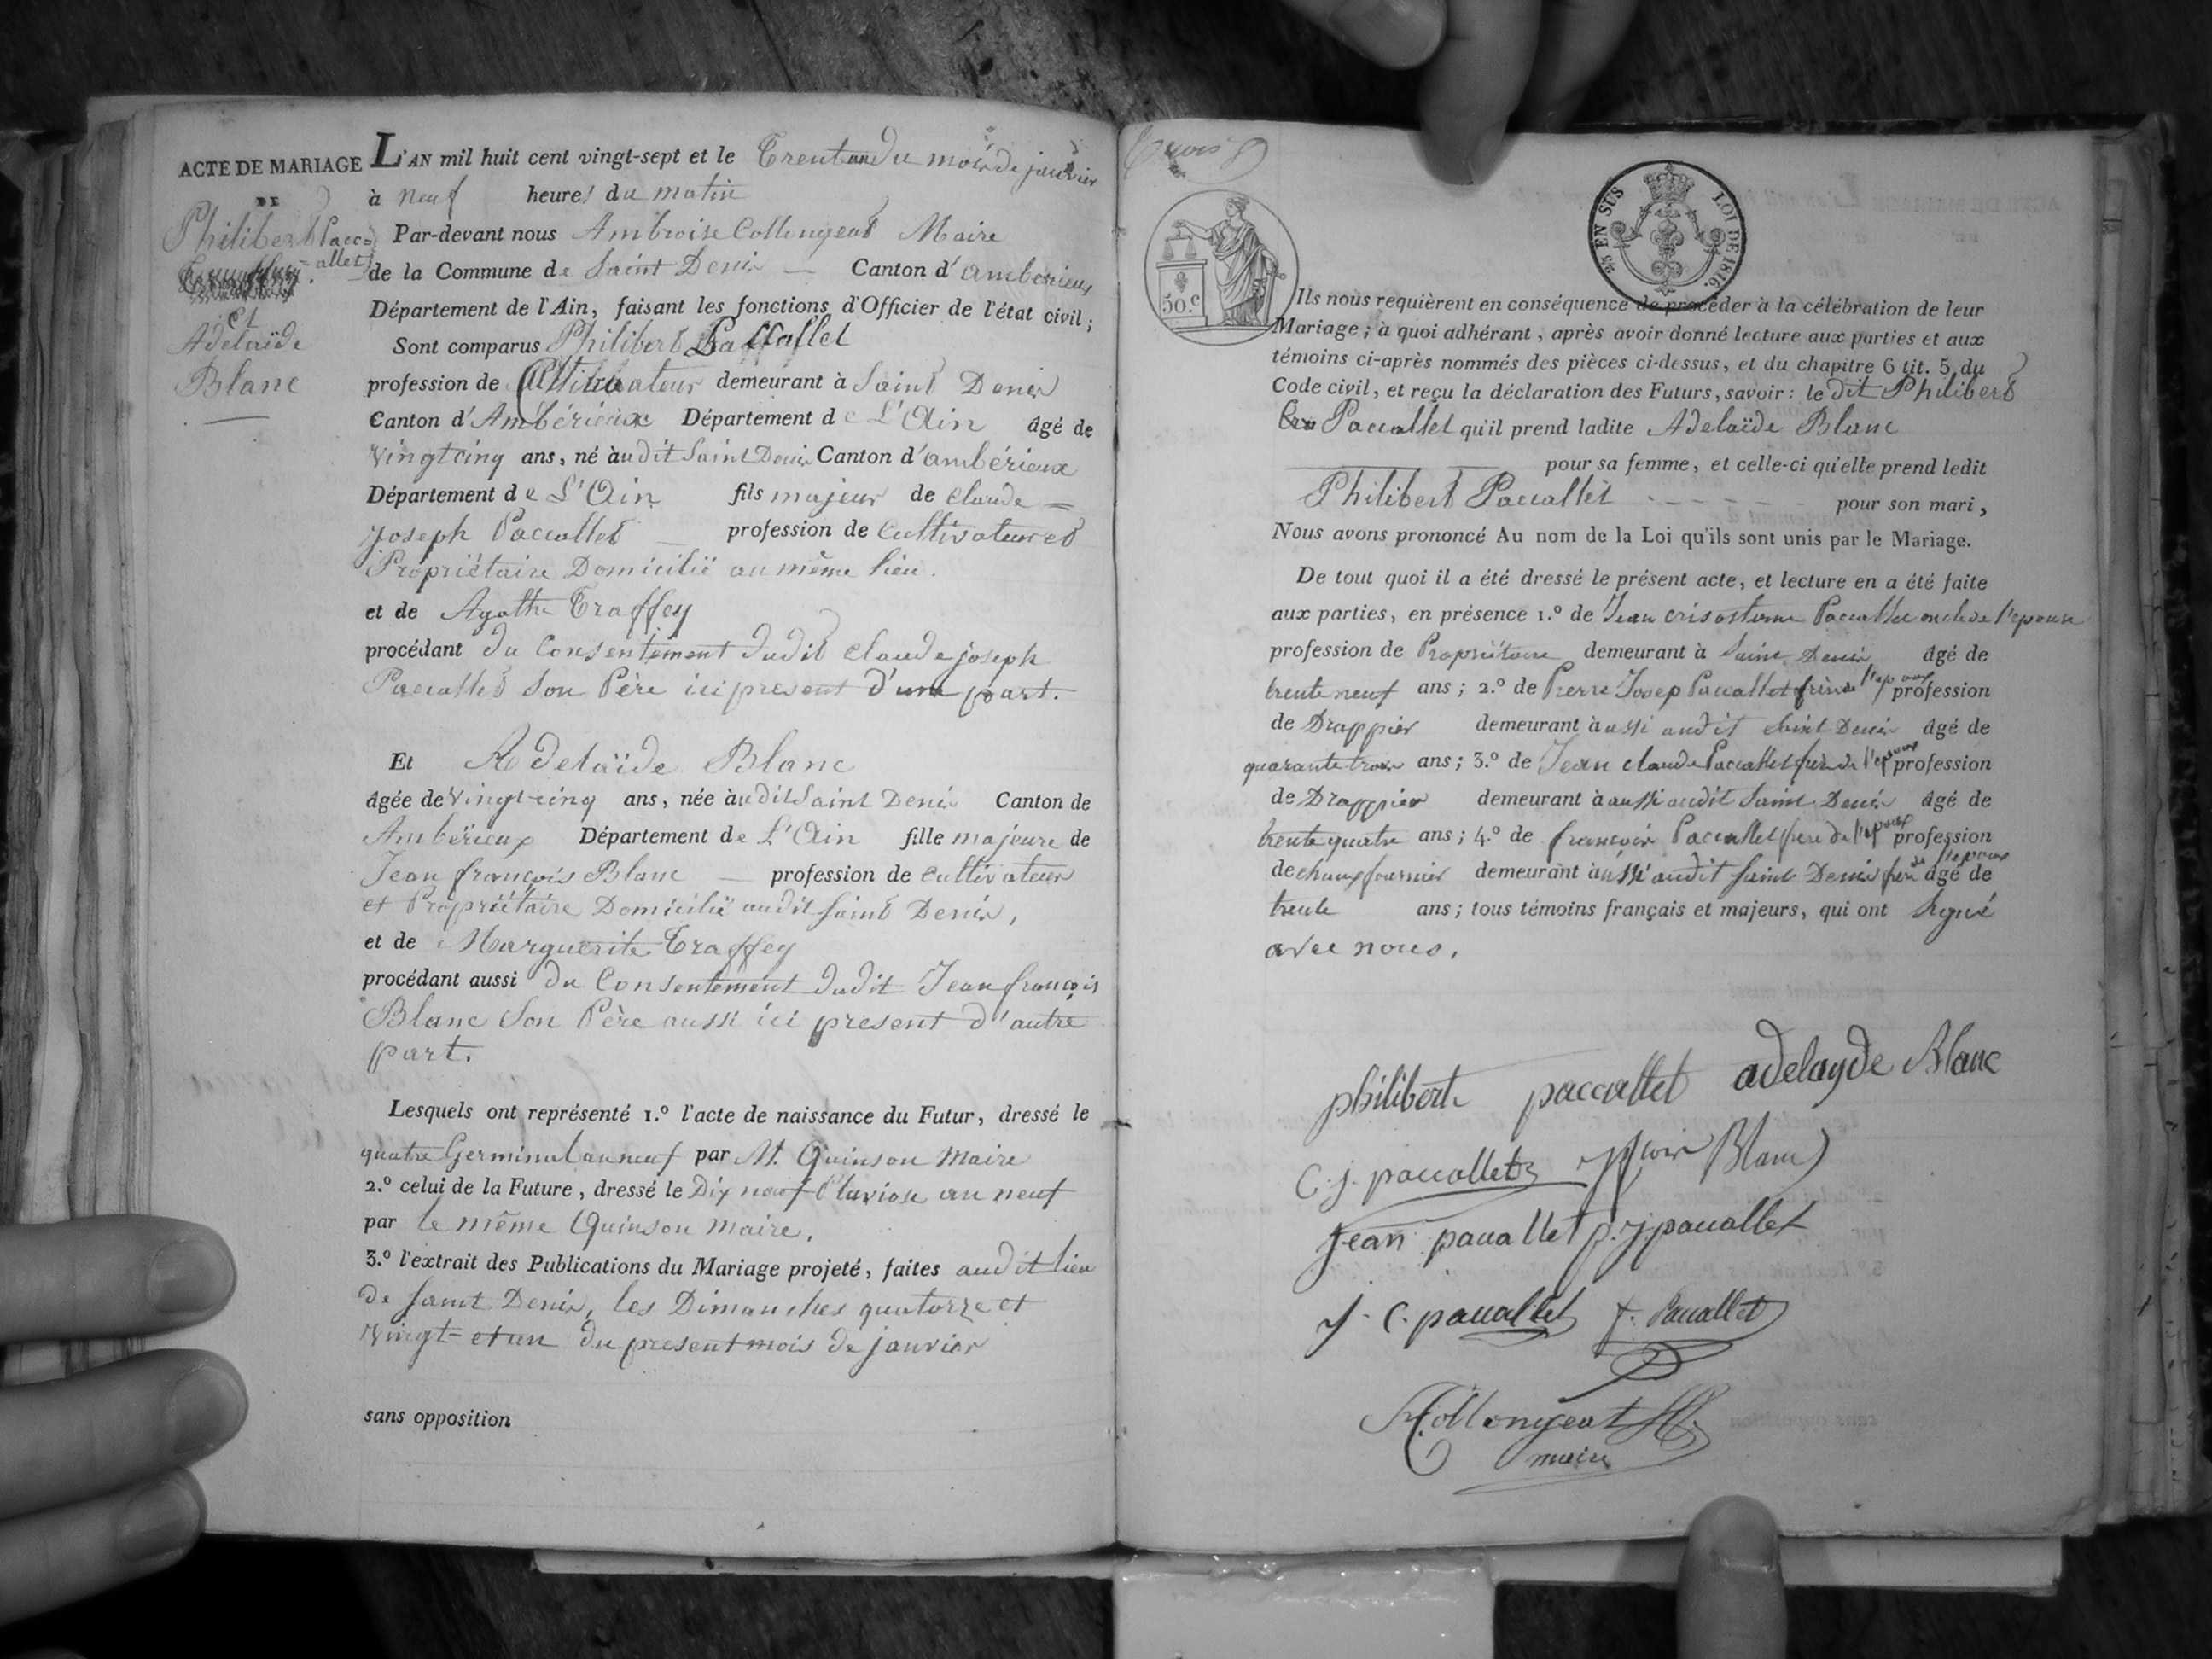 ACTE DE MARIAGE
DE
Philibert Pacc=
=allet
et
Adelaïde
Blanc
L'AN mil huit cent vingt-sept et le Trente un du mois de janvier
à neuf heures du matin
Par-devant nous Ambroise Collongeat Maire
de la Commune de Saint Denis — Canton d'amberieux
Département de l'Ain, faisant les fonctions d'Officier de l'état civil;
Sont comparus Philibert Paccallet
profession de Cultivateur demeurant à Saint Denis
Canton d'Ambérieux Département de L'Ain âgé de
vingt cinq ans, né àudit Saint Denis Canton d'ambérieux
Département de L'Ain fils majeur de claude =
joseph Paccallet — profession de Cultivateur et
Propriétaire Domicilié au même lieu.
et de Agathe Traffey
procédant du Consentement dudit claude joseph
Paccallet son Père ici present d'une part.
Et Adelaïde Blanc
âgée de vingt-cinq ans, née àudit Saint Denis Canton de
Ambérieux Département de L'Ain fille majeure de
Jean françois Blanc — profession de cultivateur
et Propriétaire Domicilié audit Saint Denis,
et de Marguerite Traffey
procédant aussi du Consentement dudit Jean françois
Blanc son Père aussi ici present d'autre
part.
Lesquels ont représenté 1.º l'acte de naissance du Futur, dressé le
quatre Germinal an neuf par M. Quinson Maire
2.º celui de la Future, dressé le Dix neuf Pluviose an neuf
par le même Quinson Maire,
3.º l'extrait des Publications du Mariage projeté, faites audit lieu
de Saint Denis, les Dimanches quatorze et
vingt-et un du present mois de janvier
sans opposition
trois
50.c
25 EN SUS LOI DE 1816.
Ils nous requièrent en conséquence de procéder à la célébration de leur
Mariage; à quoi adhérant, après avoir donné lecture aux parties et aux
témoins ci-après nommés des pièces ci-dessus, et du chapitre 6 tit. 5 du
Code civil, et reçu la déclaration des Futurs, savoir: le dit Philibert
Paccallet qu'il prend ladite Adelaïde Blanc
pour sa femme, et celle-ci qu'elle prend ledit
Philibert Paccallet - - - - pour son mari,
Nous avons prononcé Au nom de la Loi qu'ils sont unis par le Mariage.
De tout quoi il a été dressé le présent acte, et lecture en a été faite
aux parties, en présence 1.º de Jean crisostome Paccallet oncle de l'epoux
profession de Propriétaire demeurant à Saint Denis âgé de
trente neuf ans; 2.º de Pierre Josep Paccallet frère de l'epoux profession
de Drappier demeurant à aussi audit Saint Denis âgé de
quarante trois ans; 3.º de Jean claude Paccallet frère de l'epoux profession
de Drappier demeurant à aussi audit Saint Denis âgé de
trente quatre ans; 4.º de françois Paccallet frere de l'epoux profession
de chauxfournier demeurant à aussi audit Saint Denis frere de l'epoux âgé de
trente ans; tous témoins français et majeurs, qui ont signé
avec nous,
philibert paccallet adelayde Blanc
C. j. paccallet Blanc
jean paccallet p. j. paccallet
J. C. paccallet f. Paccallet
A. Collongeat
maire